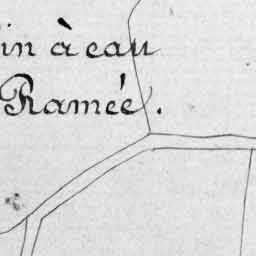 in à eau
Ramée.